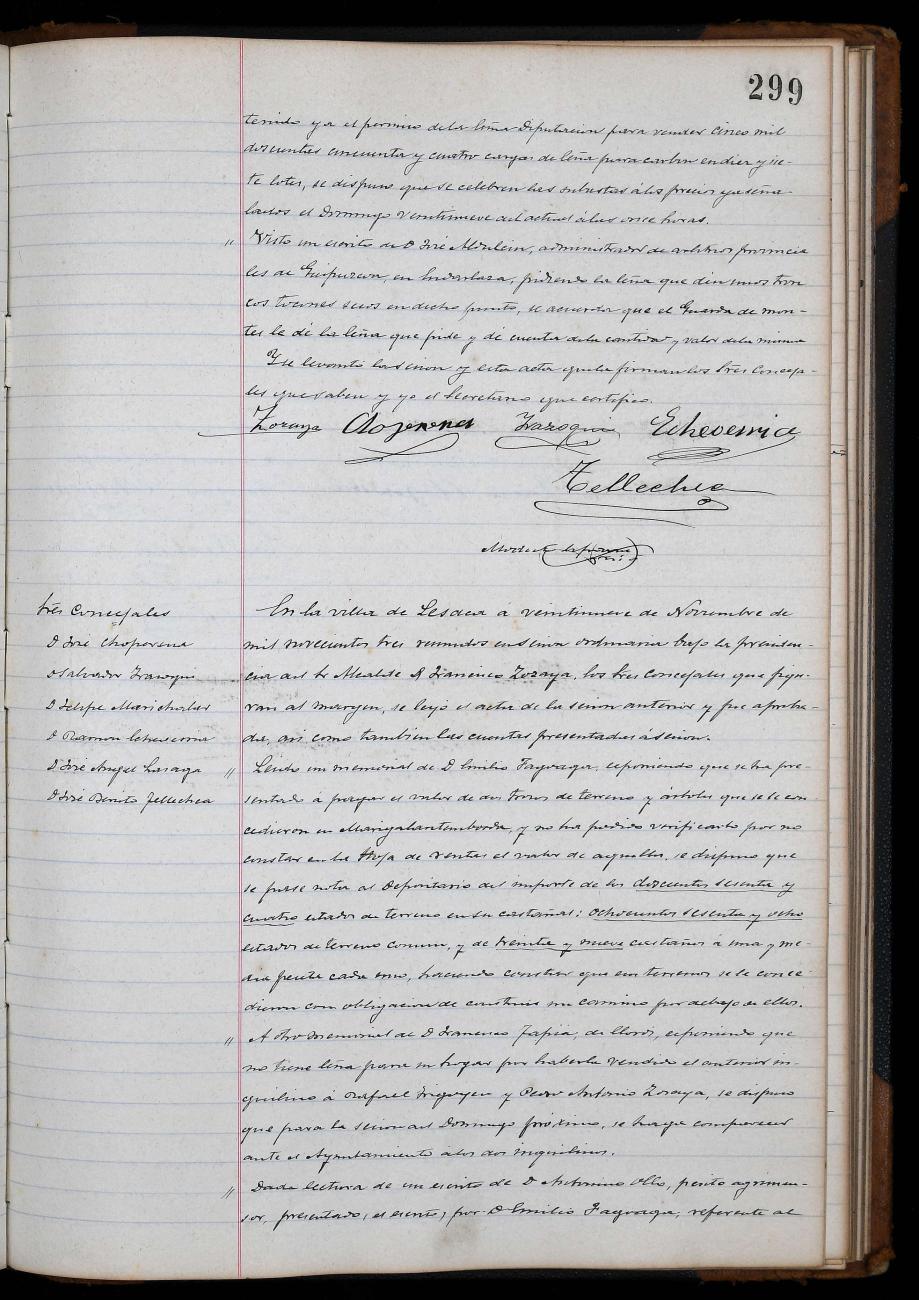 299
tenido ya el permiso de la Exma Diputacion para vender cinco mil
doscientas cincuenta y cuatro cargas de leña para carbon en diez y sie-
te lotes, se dispuso que se celebren las subastas á los precios ya seña
lados el Domingo veintinueve del actual á las once horas.
" Visto un escrito de D José administrador de arbitrios provincia
les de Guipuzcoa, en Endarlaza, pidiendo la leña que den unos tron
cos secos en dicho punto, se acuerda que el Guarda de mon-
tes le dé la leña que pide y dé cuenta de la cantidad y valor de la misma
Y se levantó la sesion y esta acta que la firman los tres Conceja-
les que saben y yo el Secretario que certifico.
Zozaya Choperena Irazoqui Echeverria
Tellechea
tres Concejales
D José Choperena
D Salvador Irazoqui
D Felipe Marichalar
D Ramon Echeverria
D José Angel Lasaga
D José Benito Tellechea
En la villa de Lesaca á veintinueve de Noviembre de
mil novecientos tres reunidos en sesion ordinaria bajo la presiden-
cia del Sr Alcalde D Francisco Zozaya, los tres Concejales que figu-
ran al margen, se leyó el acta de la sesion anterior y fue aproba-
da, asi como tambien las cuentas presentadas á sesion.
" Leido un memorial de D Emilio Tayvaga, esponiendo que se ha pre-
sentado á pagar el valor de dos trozos de terreno y árboles que se le con
cedieron en Marigalantenborda, y no ha podido verificarlo por no
constar en la Hoja de ventas el valor de aquellos, se dispuso que
se pase nota al Depositario del importe de los doscientos sesenta y
cuatro estados de terreno en su castañal: ochocientos sesenta y ocho
estados de terreno comun, y de treinta y nueve castaños á una y me-
dia peseta cada uno, haciendo constar que esos terrenos se le conce-
dieron con obligacion de construir un camino por debajo de ellos.
" A otro memorial de D Francisco Tapia, de esponiendo que
no tiene leña para su hogar por haberla vendido el anterior in-
quilino á Rafael Irigoyen y Pedro Antonio Zozaya, se dispuso
que para la sesion del Domingo proximo, se haga comparecer
ante el Ayuntamiento á los dos inquilinos.
" Dada lectura de un escrito de D Antonino Ollo, perito agrimen-
sor, presentado, el escrito, por D Emilio Tayvaga, referente al